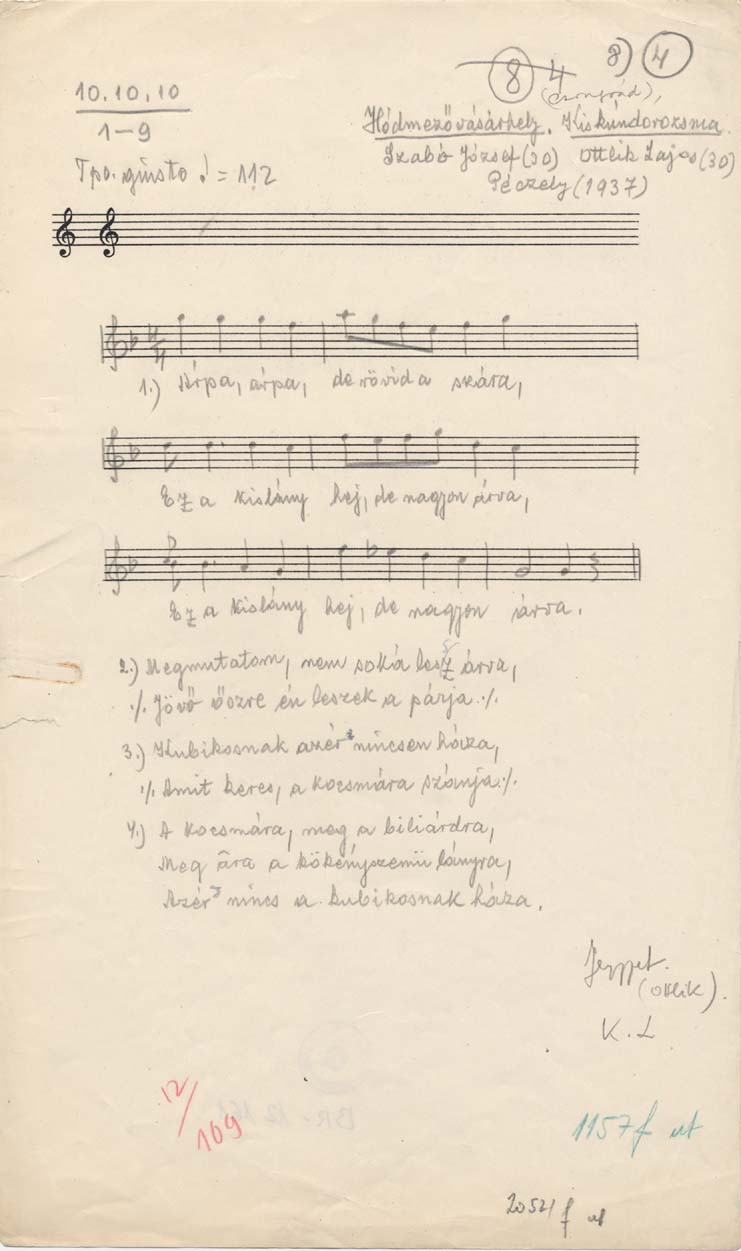 8) 4
8 4
10.10.10
(Csongrád),
1-9
Hódmezővásárhely. Kiskúndorozsma
Szabó József (30) Ottlik Lajos (30)
Tpo. giusto ♩ = 112
Péczely (1937)
4/4
1.) Árpa, árpa, de rövid a szára,
Ez a kislány hej, de nagyon árva,
Ez a kislány hej, de nagyon árva.
2.) Megmutatom, nem soká lesz árva,
·/. Jövő őszre én leszek a párja ·/.
3.) Kubikosnak azér nincsen háza,
·/. Amit keres, a kocsmára szánja ·/.
4.) A kocsmára, meg a biliárdra,
Meg ára a kökényszemü lányra,
Azér nincs a kubikosnak háza.
(Ottlik).
K. L
12/109
1157f
20521 f